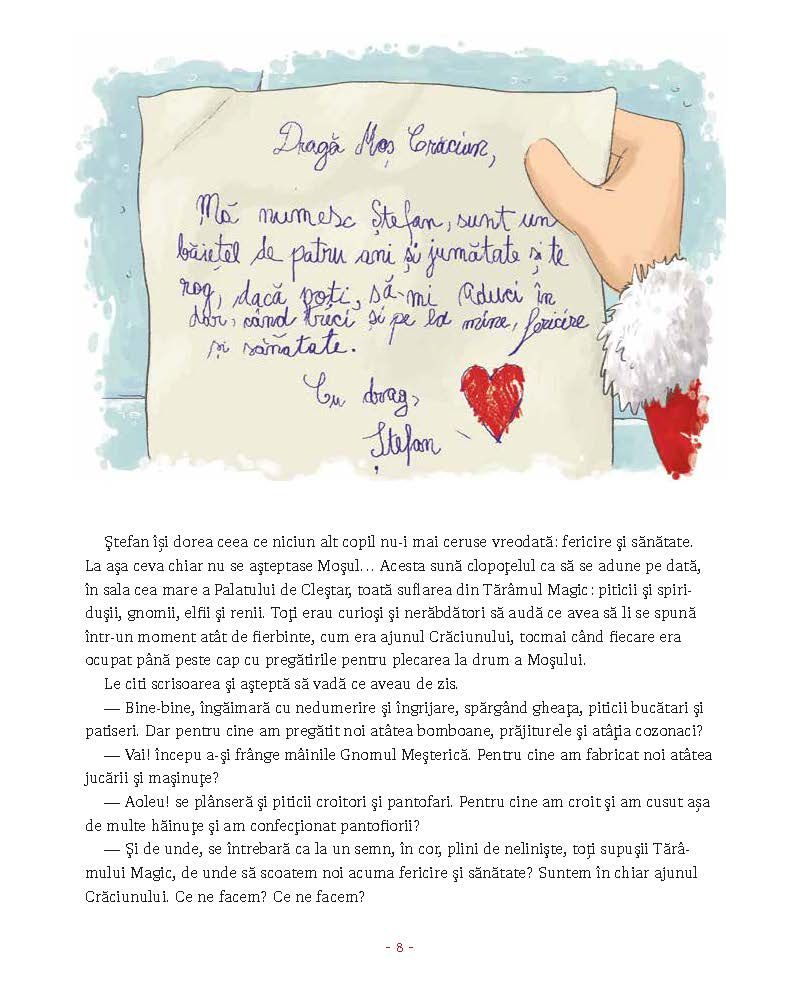 Dragă Moș Crăciun,
Mă numesc Ștefan, sunt un
băiețel de patru ani și jumătate și te
rog, dacă poți, să-mi aduci în
dar, când treci și pe la mine, fericire
și sănătate.
Cu drag,
Ștefan
Ştefan îşi dorea ceea ce niciun alt copil nu-i mai ceruse vreodată: fericire şi sănătate.
La aşa ceva chiar nu se aşteptase Moşul... Acesta sună clopoţelul ca să se adune pe dată,
în sala cea mare a Palatului de Cleştar, toată suflarea din Tărâmul Magic: piticii şi spiri-
duşii, gnomii, elfii şi renii. Toţi erau curioşi şi nerăbdători să audă ce avea să li se spună
într-un moment atât de fierbinte, cum era ajunul Crăciunului, tocmai când fiecare era
ocupat până peste cap cu pregătirile pentru plecarea la drum a Moşului.
Le citi scrisoarea şi aşteptă să vadă ce aveau de zis.
— Bine-bine, îngăimară cu nedumerire şi îngrijare, spărgând gheaţa, piticii bucătari şi
patiseri. Dar pentru cine am pregătit noi atâtea bomboane, prăjiturele şi atâţia cozonaci?
— Vai! începu a-şi frânge mâinile Gnomul Meşterică. Pentru cine am fabricat noi atâtea
jucării şi maşinuţe?
— Aoleu! se plânseră şi piticii croitori şi pantofari. Pentru cine am croit şi am cusut așa
de multe hăinuţe şi am confecţionat pantofiorii?
— Şi de unde, se întrebară ca la un semn, în cor, plini de nelinişte, toţi supuşii Tărâ-
mului Magic, de unde să scoatem noi acuma fericire şi sănătate? Suntem în chiar ajunul
Crăciunului. Ce ne facem? Ce ne facem?
- 8 -